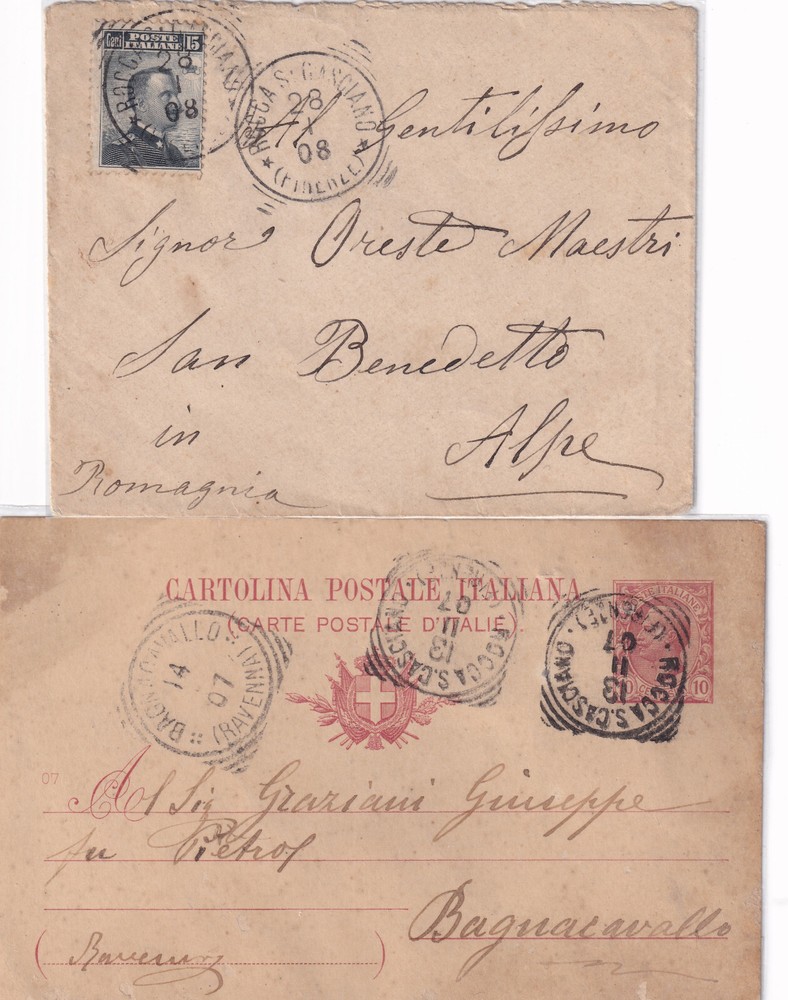 Cent POSTE ITALIANE 15
ROCCA S. CASCIANO
28
08
ROCCA S. CASCIANO
28
X
08
(FIRENZE)
Al Gentilissimo
Signor Oreste Maestri
San Benedetto
in Alpe
Romagnia
CARTOLINA POSTALE ITALIANA
(CARTE POSTALE D'ITALIE)
POSTE ITALIANE
10
ROCCA S. CASCIANO (FIRENZE)
13
11
07
ROCCA S. CASCIANO (FIRENZE)
13
11
07
BAGNACAVALLO (RAVENNA)
14
07
07
Al Sig Graziani Giuseppe
fu Pietro
Bagnacavallo
(Ravenna)